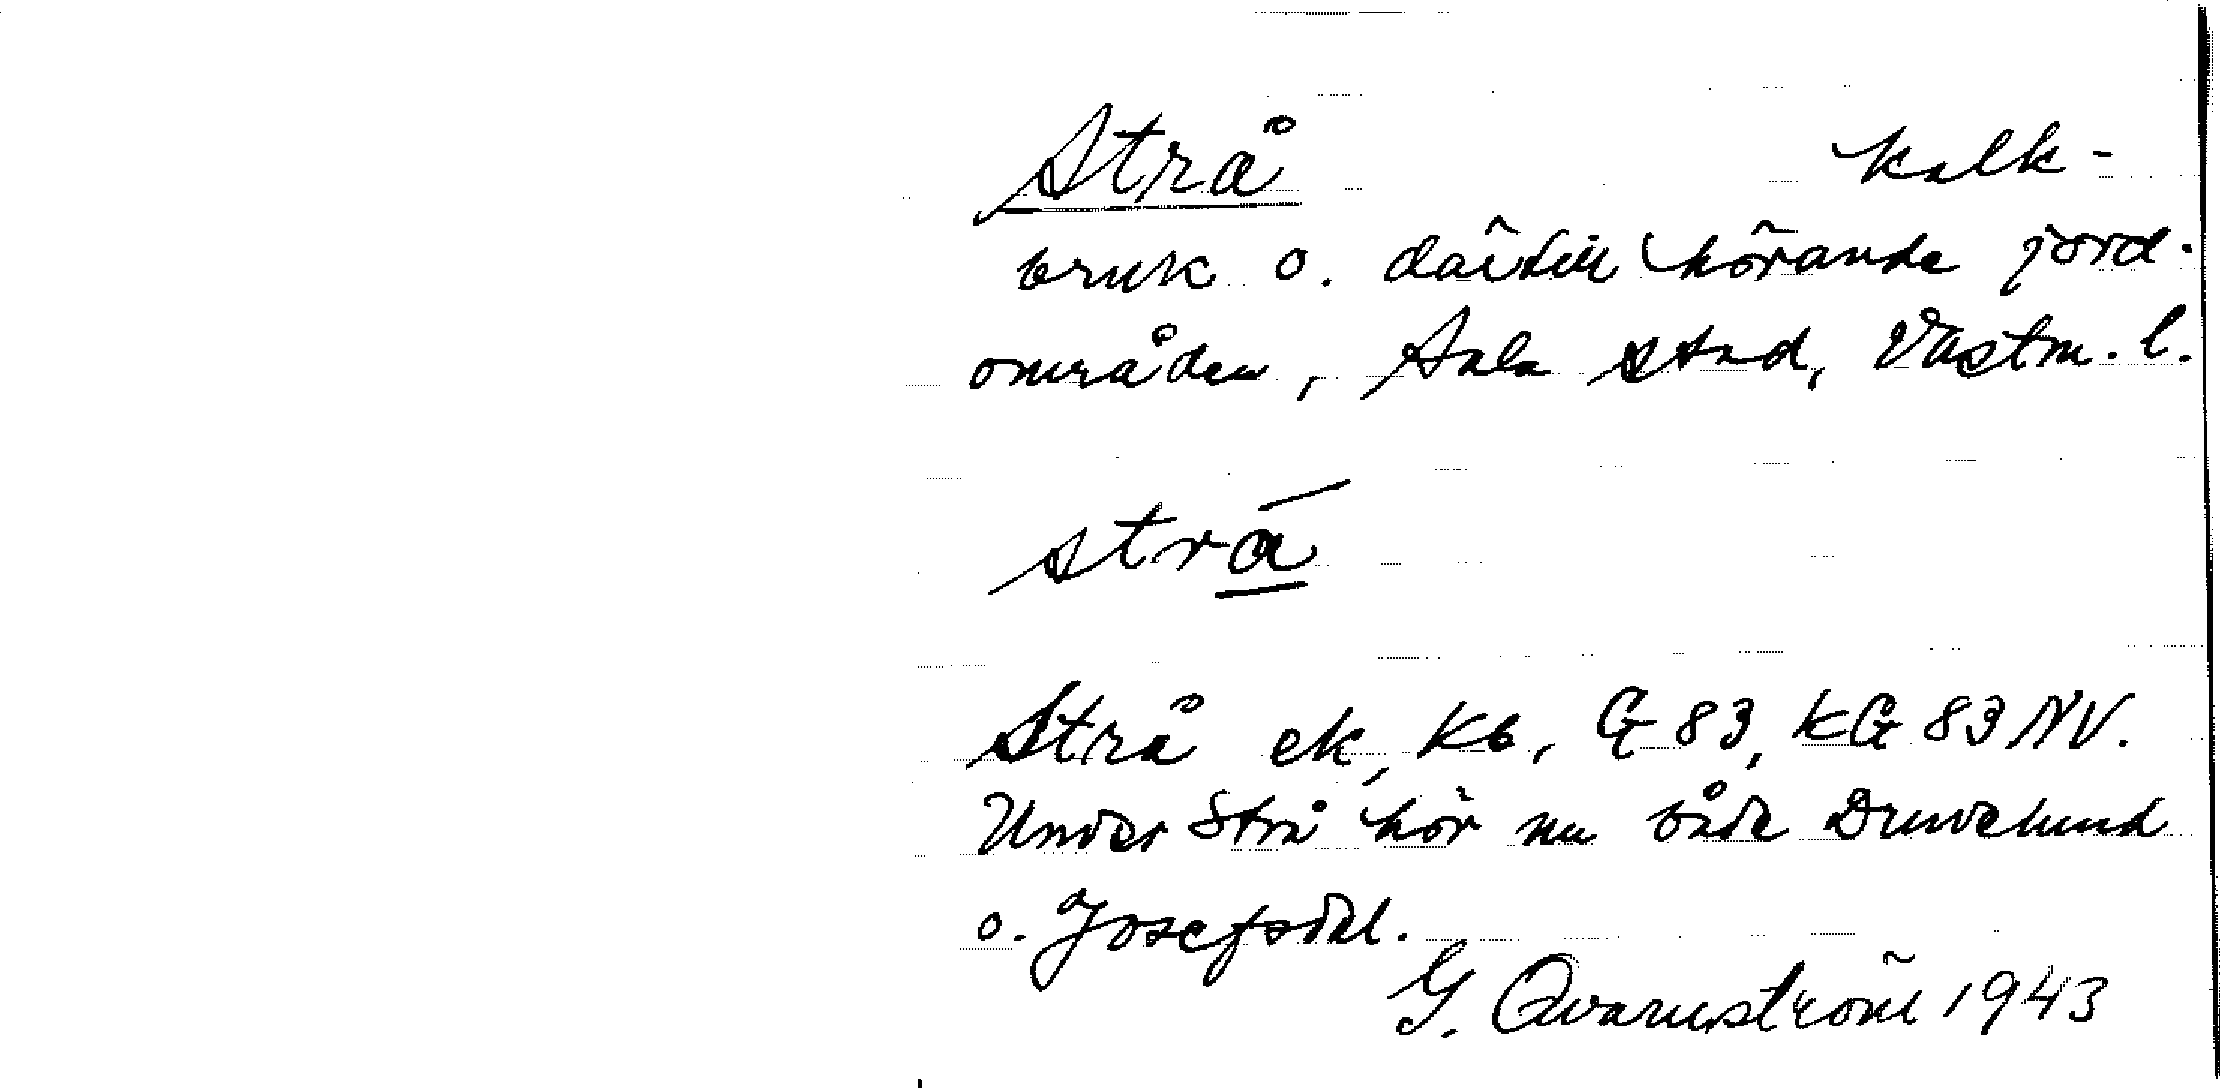 Strå kalk-
bruk o. därtill hörande jord-
områden, Sala stad, Västm. l.
strā̲
Strå ek, Kb, G 83, KG 83 NV.
Under Strå hör nu både Druvelund
o. Josefsdal.
G. Qvarnström 1943